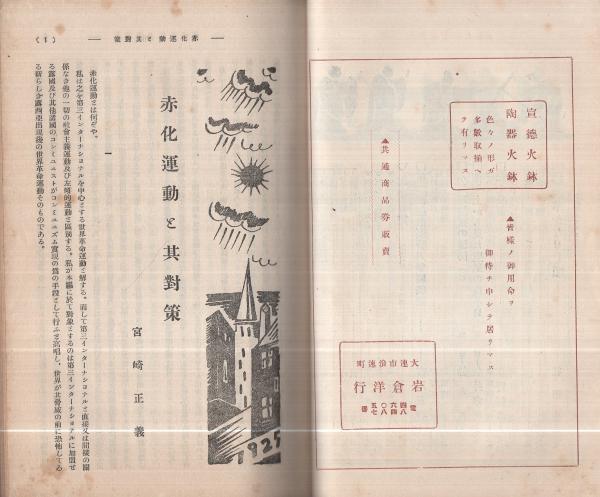 宣德火鉢
陶器火鉢
色々ノ形ガ
多數取揃ヘ
ヲ有リマス
▲皆樣ノ御用命ヲ
御待チ申シテ居リマス
▲共通商品券販賣
大連市浪速町
岩倉洋行
電
四六〇五
八四八七
番
(1)
— 赤化運動と其對策 —
赤化運動と其對策
宮崎正義
1925
一
赤化運動とは何ぞや。
私は之を第三インターナショナルを中心とする世界革命運動と解する。而して第三インターナショナルと直接又は間接の關
係なき他の一切の社會主義運動及び左傾的運動と區別する。私が本編に於て對象とするのは第三インターナショナルに加盟せ
る露國及び其他諸國のコミュニストがコミュニズム實現の爲の手段として行ふを高唱し、世界が其脅威の前に恐怖してる
る新らしき露西亞出現後の世界革命運動そのものである。